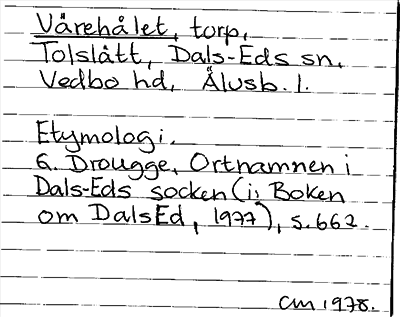 Vårehålet, torp,
Tolslätt, Dals-Eds sn,
Vedbo hd, Älvsb. l.
Etymologi.
G. Drougge, Ortnamnen i
Dals-Eds socken (i: Boken
om DalsEd, 1977), s. 662.
CM 1978.